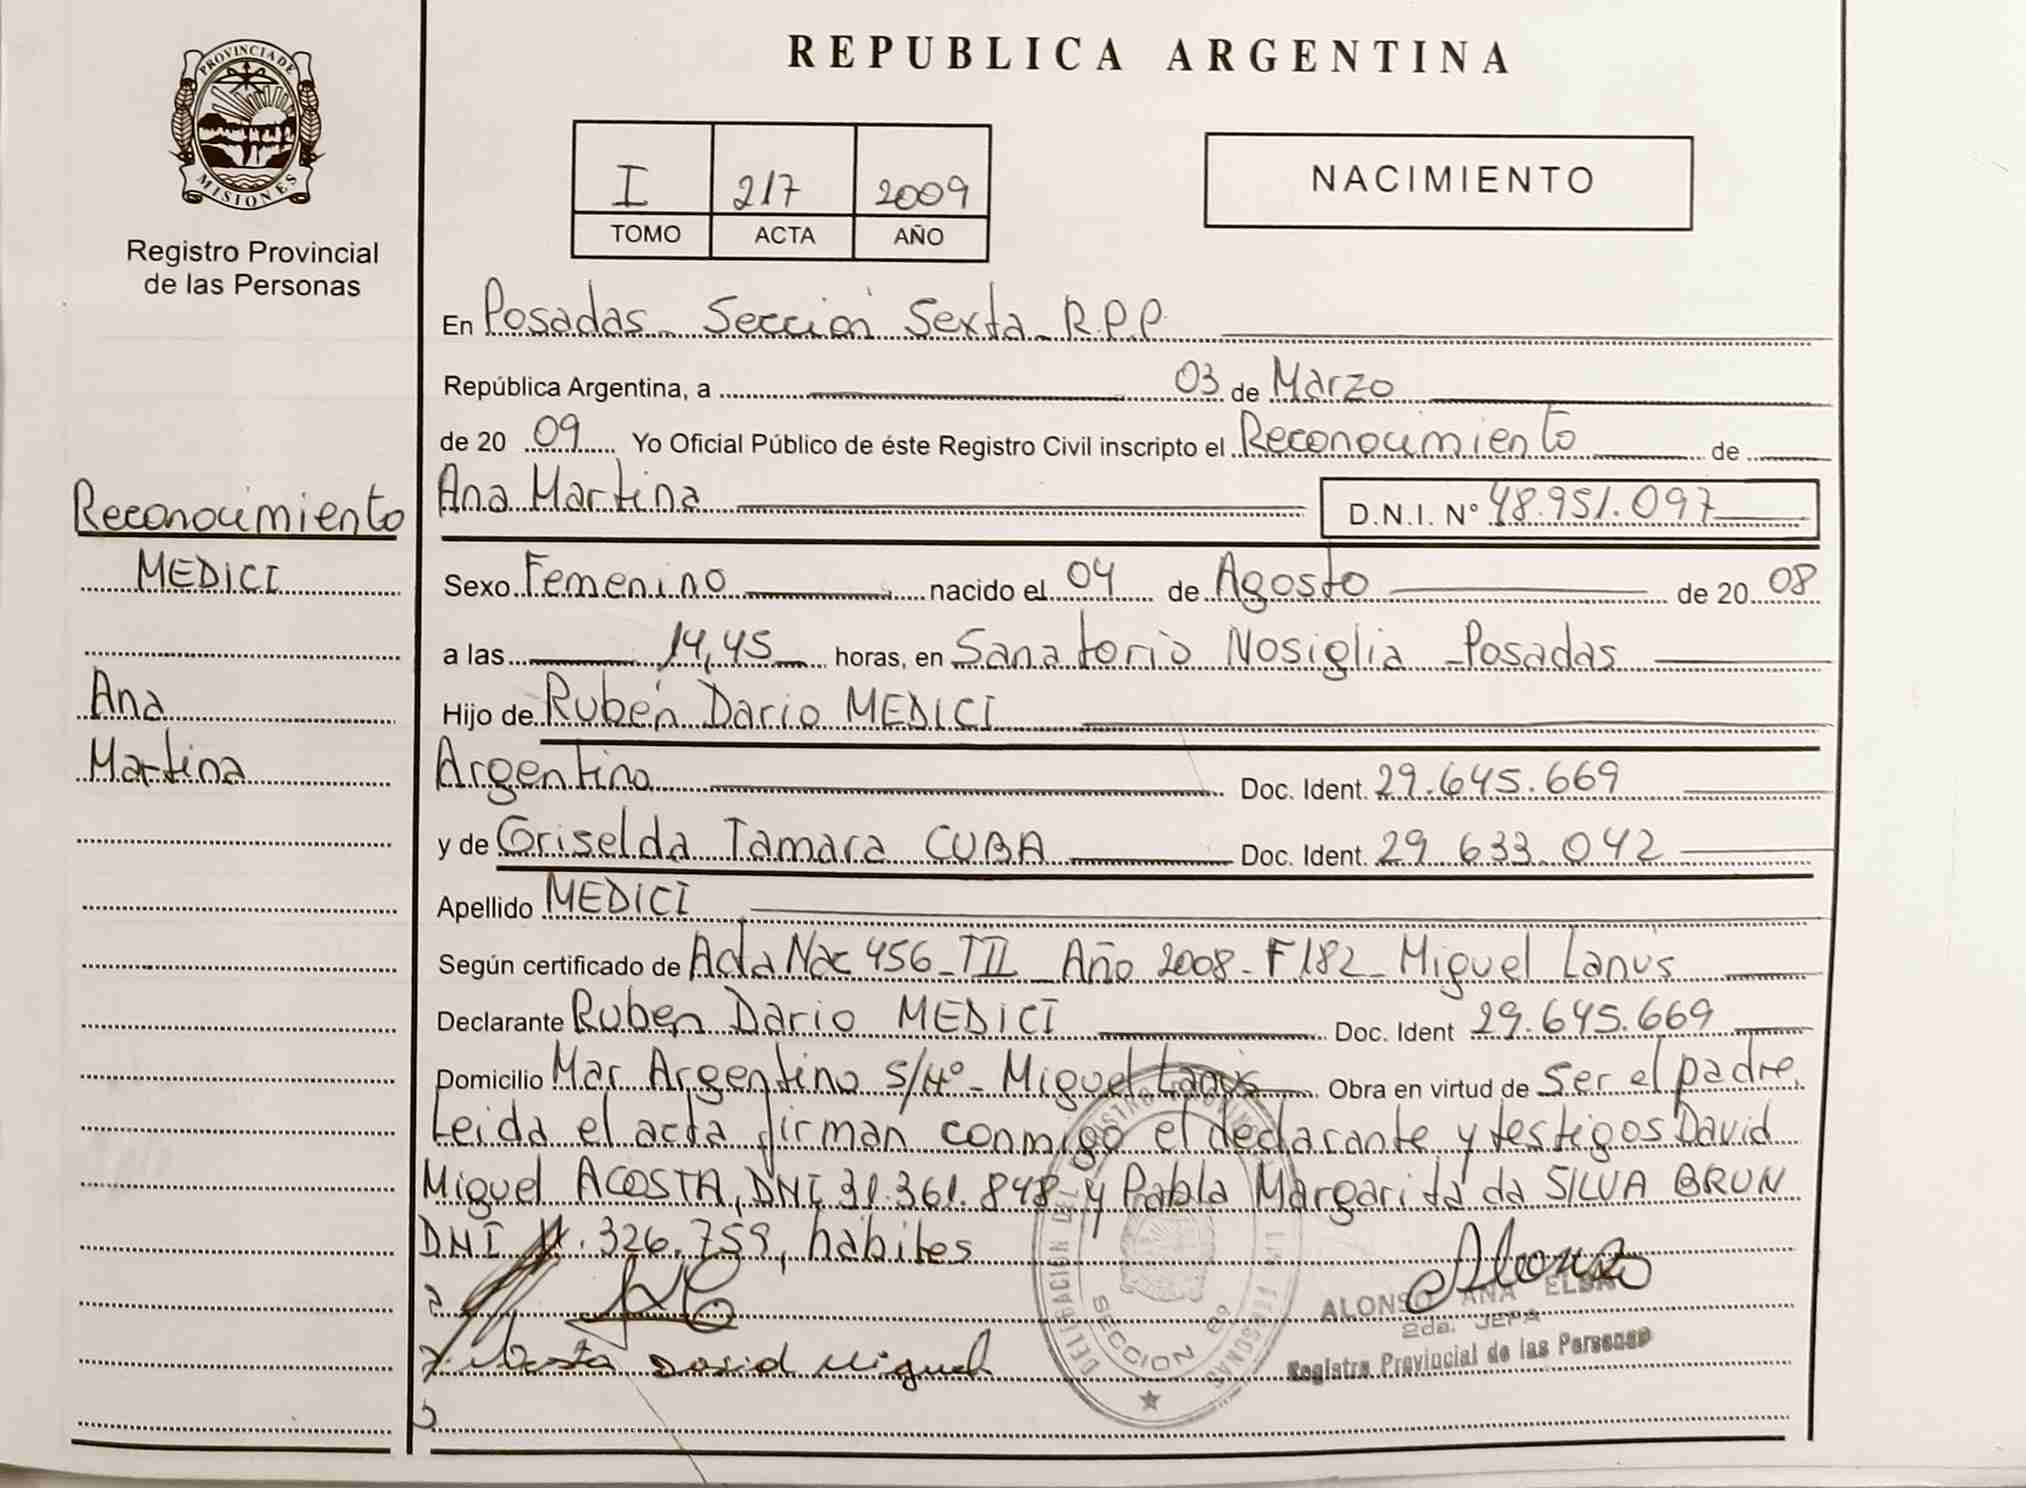 REPUBLICA ARGENTINA
PROVINCIA DE
MISIONES
Registro Provincial
de las Personas
I 217 2009
TOMO ACTA AÑO
NACIMIENTO
En Posadas Sección Sexta R.P.P.
República Argentina, a 03 de Marzo
de 20 09 Yo Oficial Público de éste Registro Civil inscripto el Reconocimiento de
Ana Martina D.N.I. N° 48.951.097
Sexo Femenino nacido el 04 de Agosto de 20 08
a las 14,45 horas, en Sanatorio Nosiglia - Posadas
Hijo de Rubén Dario MEDICI
Argentino Doc. Ident. 29.645.669
y de Griselda Tamara CUBA Doc. Ident. 29.633.042
Apellido MEDICI
Según certificado de Acta Nac 456 - TII - Año 2008 - F182 - Miguel Lanús
Declarante Ruben Dario MEDICI Doc. Ident 29.645.669
Domicilio Mar Argentino S/Nº - Miguel Lanús Obra en virtud de ser el padre.
Leida el acta firman conmigo el declarante y testigos David
Miguel ACOSTA, DNI 31.361.848 y Pabla Margarita da SILVA BRUN
DNI .326.759, hábiles
Acosta David Miguel
Alonso
ALONSO ANA ELSA
2da. JEFA
Registro Provincial de las Personas
DELEGACION DEL REGISTRO PROVINCIAL DE LAS PERSONAS
SECCION 6ª
Reconocimiento
MEDICI
Ana
Martina